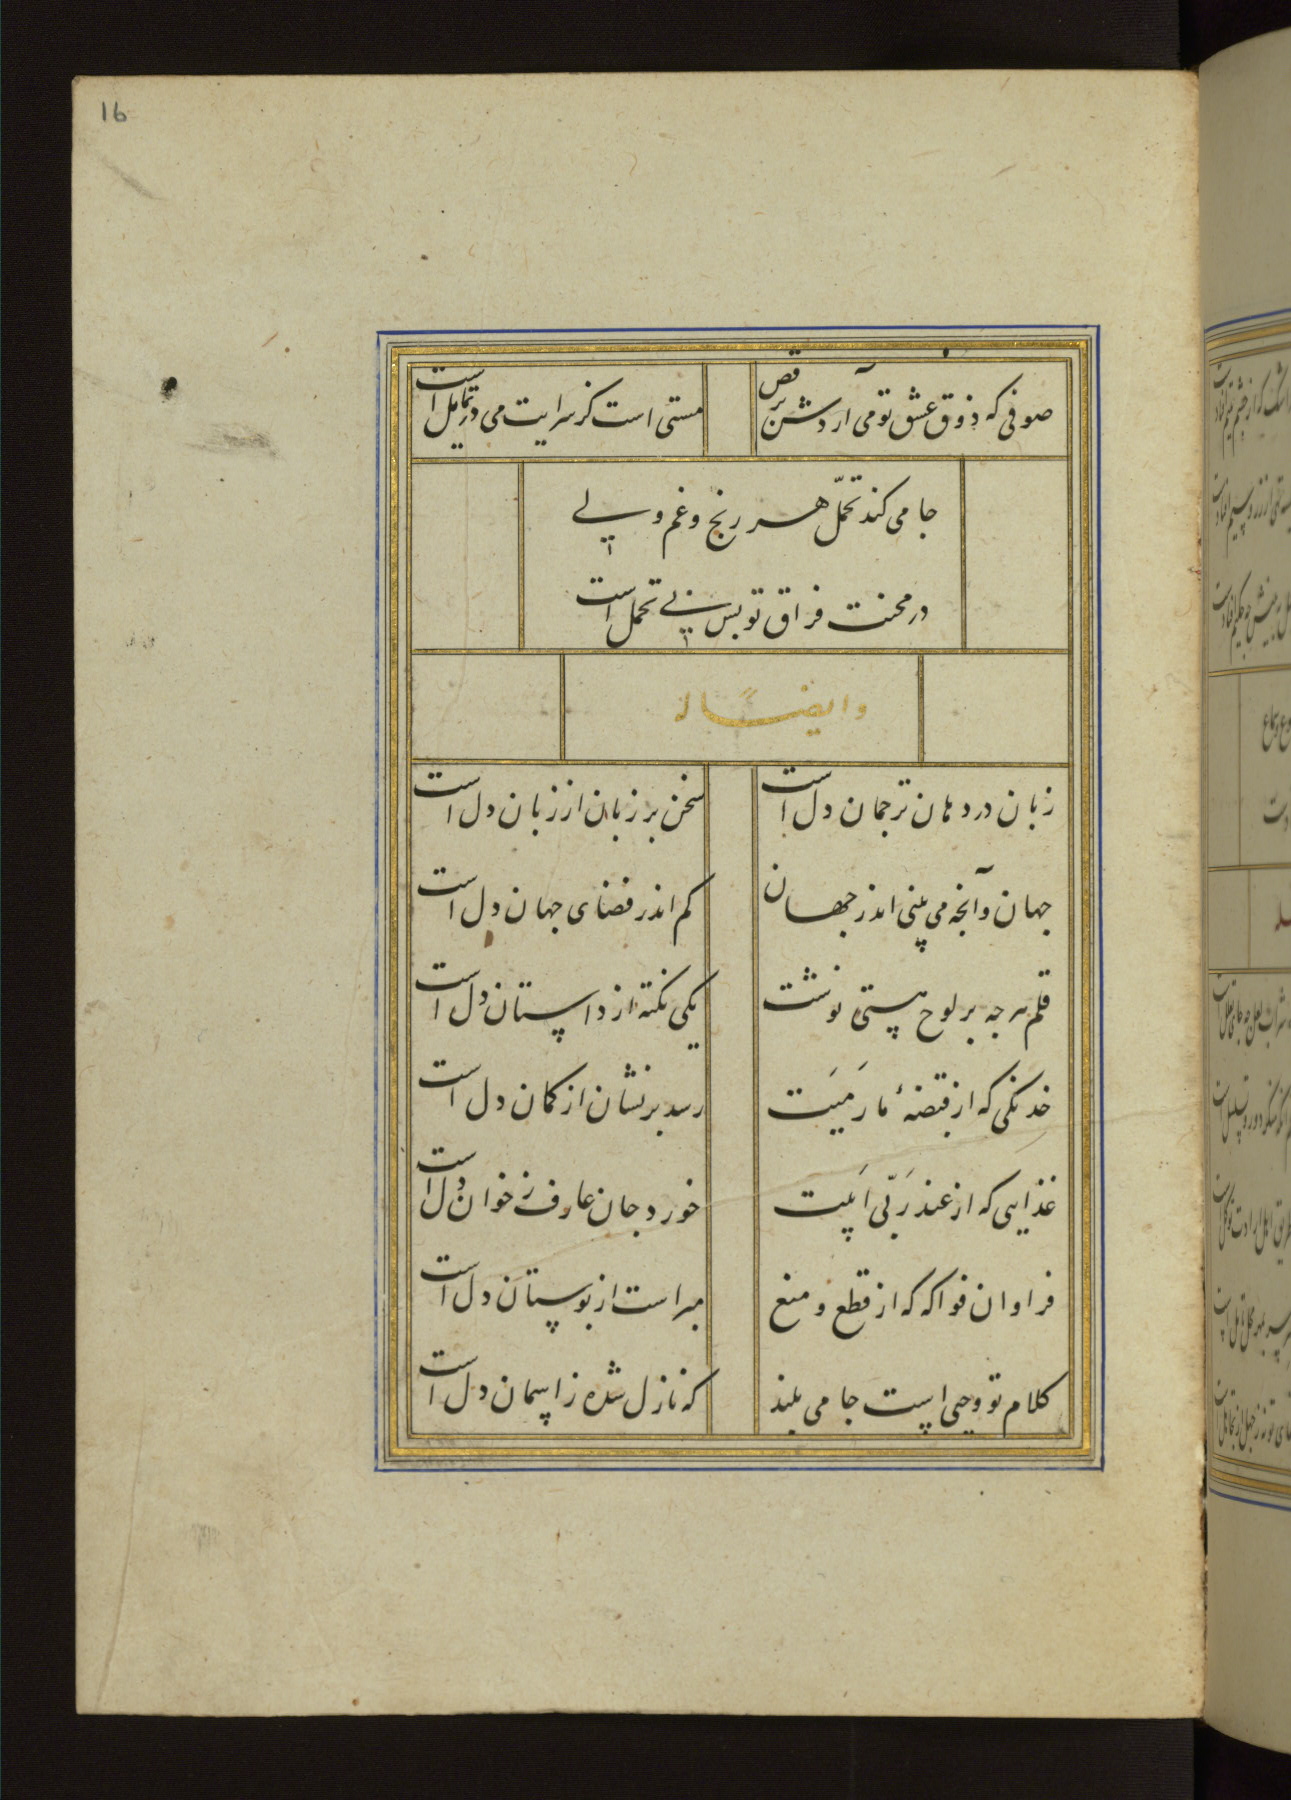 16
صوفی که ذوق عشق تو می آردش برقص
مستی است کز سرایت می در تمایل است
جامی کند تحمّل هر رنج و غم ولی
در محنت فراق تو بس بی تحمل است
وایضاً له
زبان در دهان ترجمان دل است
سخن بر زبان از زبان دل است
جهان و آنچه می بینی اندر جهان
کم اندر فضای جهان دل است
قلم هر چه بر لوح هستی نوشت
یکی نکته از داستان دل است
خدنگی که از قبضهٔ ما رَمَیَت
رسد بر نشان از کمان دل است
غذایی که از عند رَبّی اَبیت
خورد جان عارف ز خوان دل است
فراوان فواکه که از قطع و منع
مبراست از بوستان دل است
کلام تو وحی است جامی بلند
که نازل شده ز آسمان دل است